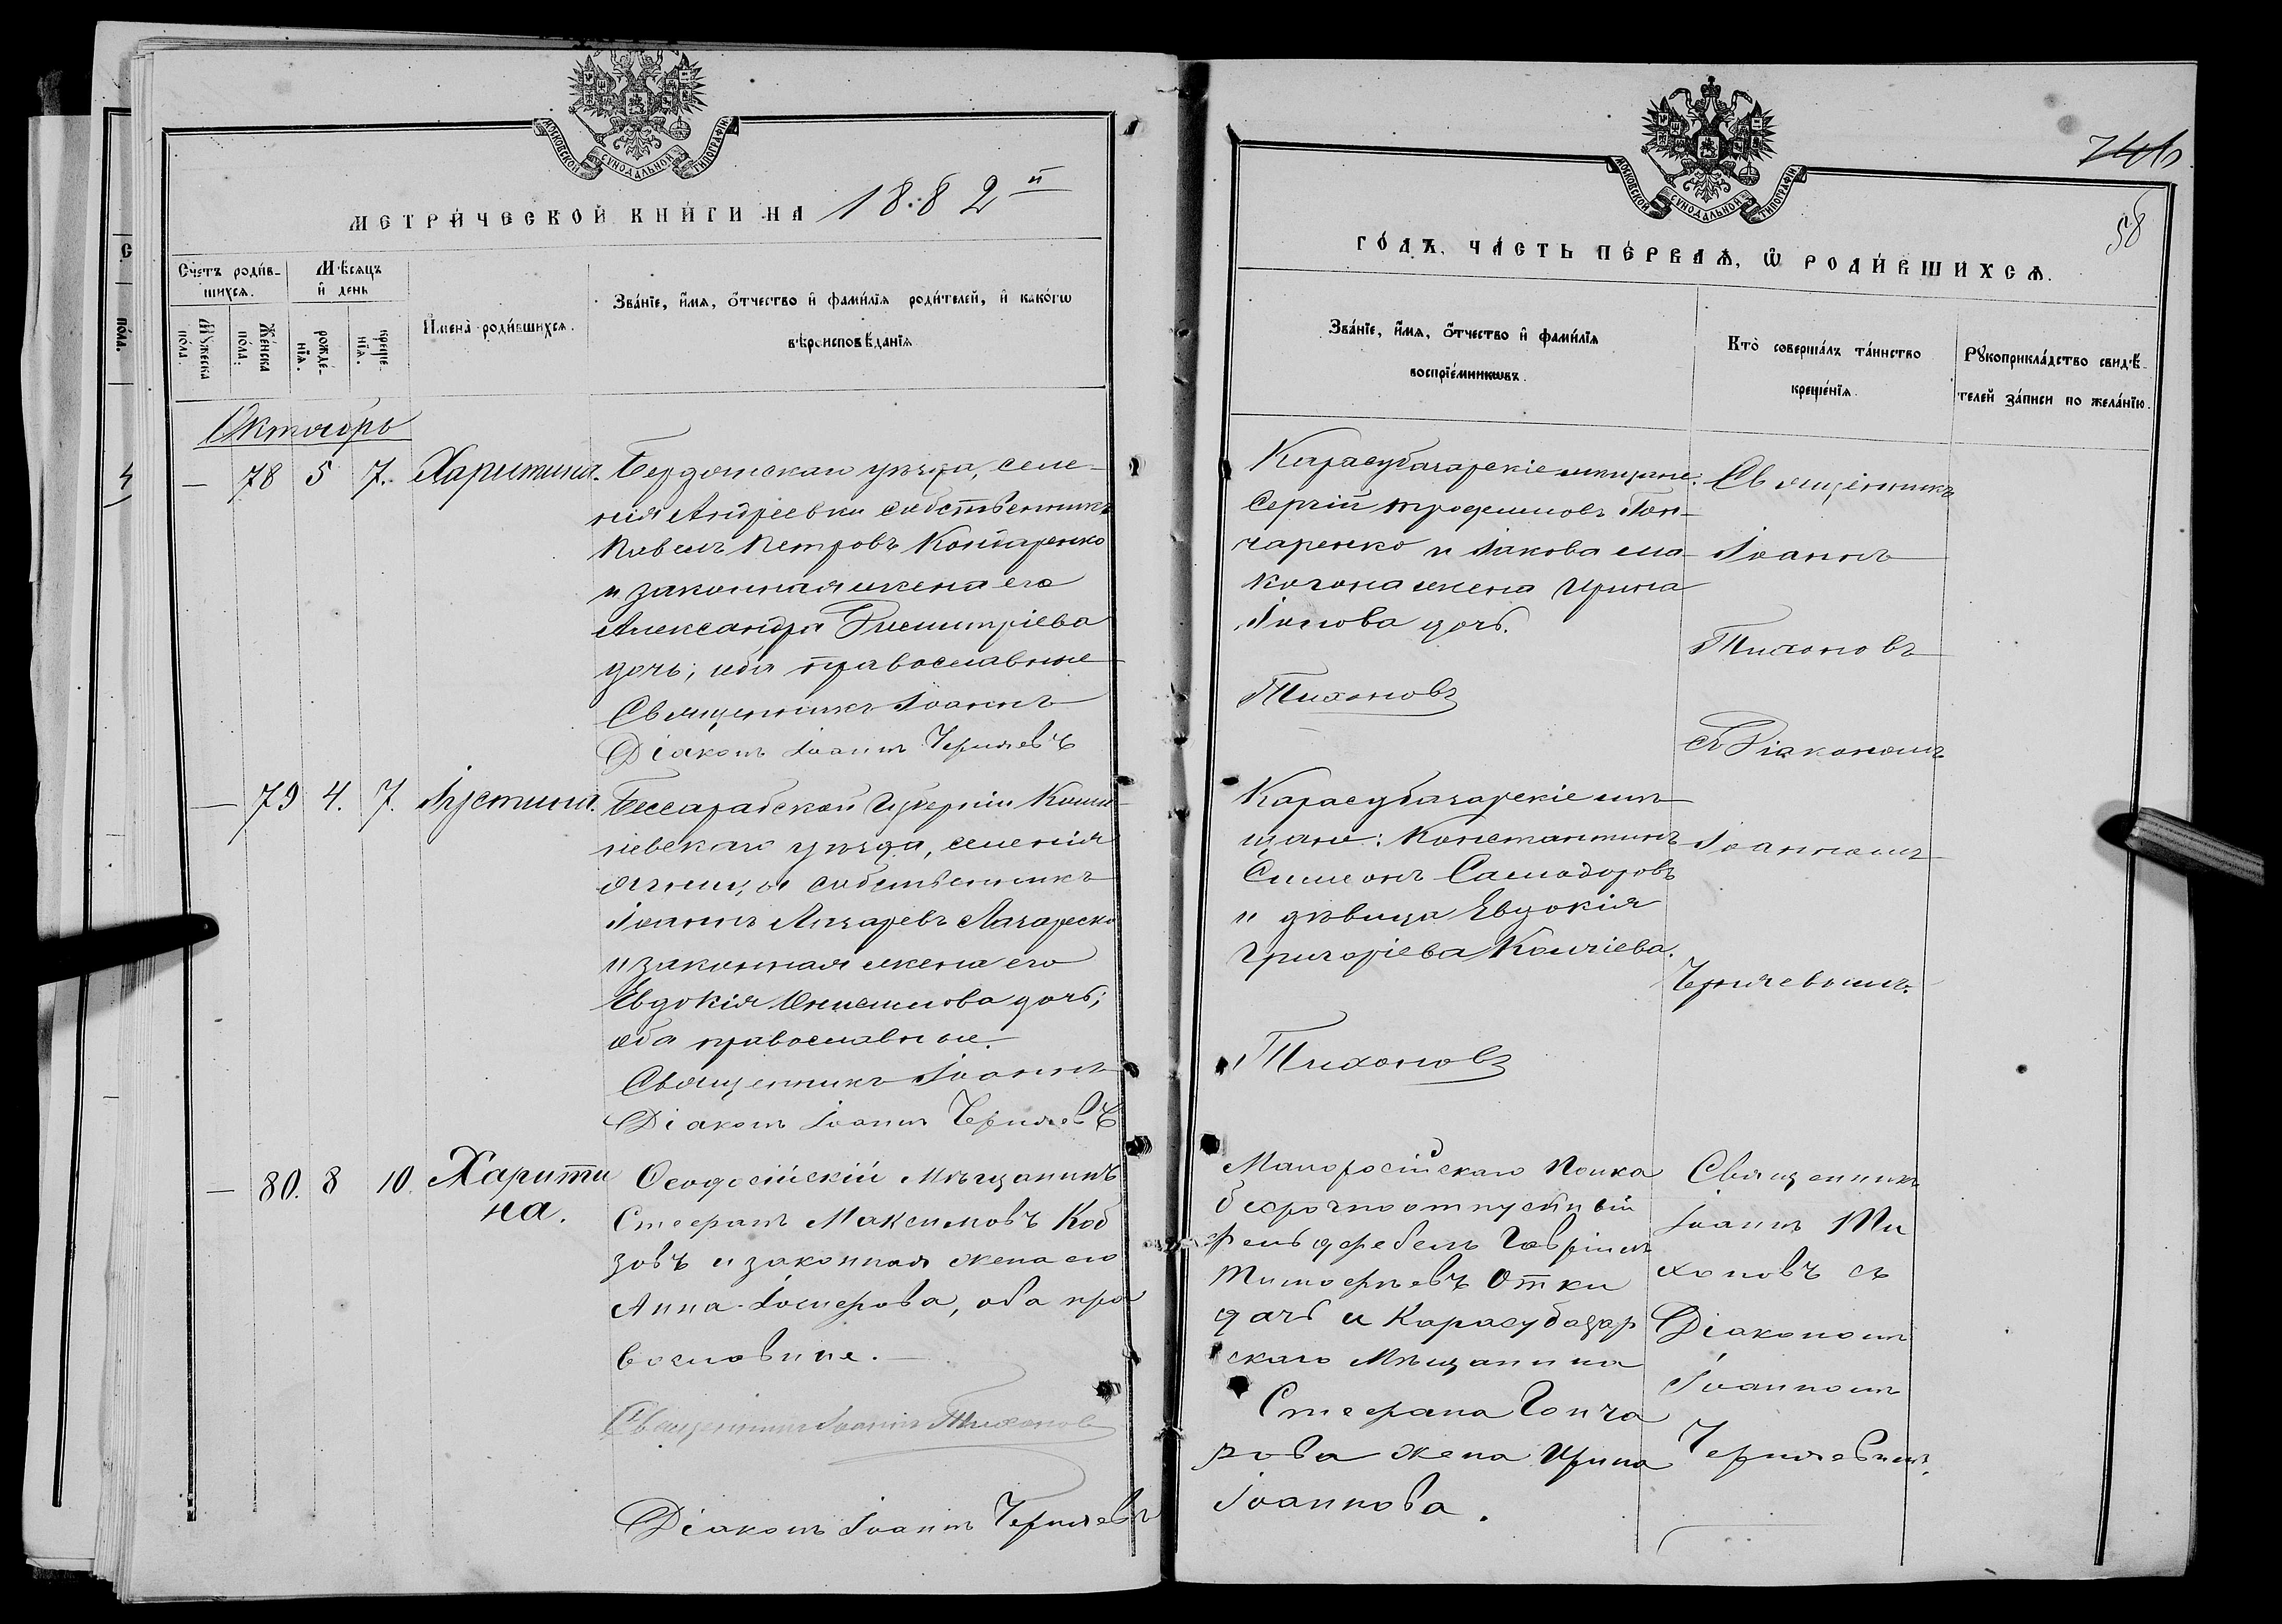 МОСКОВСКОЙ СѴНОДАЛЬНОЙ ТИПОГРАФІИ
МЕТРИЧЕСКОЙ КНИГИ НА 1882й
Счетъ родив-
шихся.
Мужеска пола.
Женска пола.
Мѣсяцъ и день
рожде-
нія.
креще-
нія.
Имена родившихся.
Званіе, имя, отчество и фамилія родителей, и какого
вѣроисповѣданія
Октябрь
— 78 5 7. Харитина. Бердянскаго уѣзда, селе-
нія Андреевки собственникъ
Павелъ Петровъ Кондаренко
и законная жена его
Александра Димитріева
дочь; оба православные
Священникъ Іоаннъ
Діаконъ Іоаннъ Черняевъ
— 79 4. 7. Іустина. Бессарабской Губерніи Киши-
невскаго уѣзда, селенія
собственникъ
Іоаннъ Лазаревъ Лазареско
и законная жена его
Евдокія дочь;
оба православные.
Священникъ Іоаннъ
Діаконъ Іоаннъ Черняевъ
— 80. 8 10. Харити
на.
Ѳеодосійскій Мѣщанинъ
Стефанъ Максимовъ Коб
зовъ и законная жена его
Анна Іосифова, оба пра
вославные.
Священникъ Іоаннъ Тихоновъ
Діаконъ Іоаннъ Черняевъ
746
58
МОСКОВСКОЙ СѴНОДАЛЬНОЙ ТИПОГРАФІИ
ГОДЪ, ЧАСТЬ ПЕРВАЯ, Ѿ РОДИВШИХСЯ.
Званіе, имя, отчество и фамилія
воспріемниковъ.
Кто совершалъ таинство
крещенія.
Рукоприкладство свидѣ-
телей записи по желанію.
Карасубазарскіе мѣщане:
Сергій Трофимовъ Гон-
чаренко и Іакова
жена Ирина
дочь.
Тихоновъ
Священникъ
Іоаннъ
Тихоновъ
съ Діакономъ
Карасубазарскіе мѣ-
щане: Константинъ
Симеонъ Самодоровъ
и дѣвица Евдокія
Григоріева
Тихоновъ
Іоанномъ
Черняевымъ.
Малоросійскаго Полка
безсрочноотпускный
Фельдфебель Гавріилъ
Тимофѣевъ Отки
дачъ и Карасубазар
скаго Мѣщанина
Стефана Гонча
рова жена Ирина
Іоаннова.
Священникъ
Іоаннъ Ти
хоновъ съ
Діакономъ
Іоанномъ
Черняевымъ.